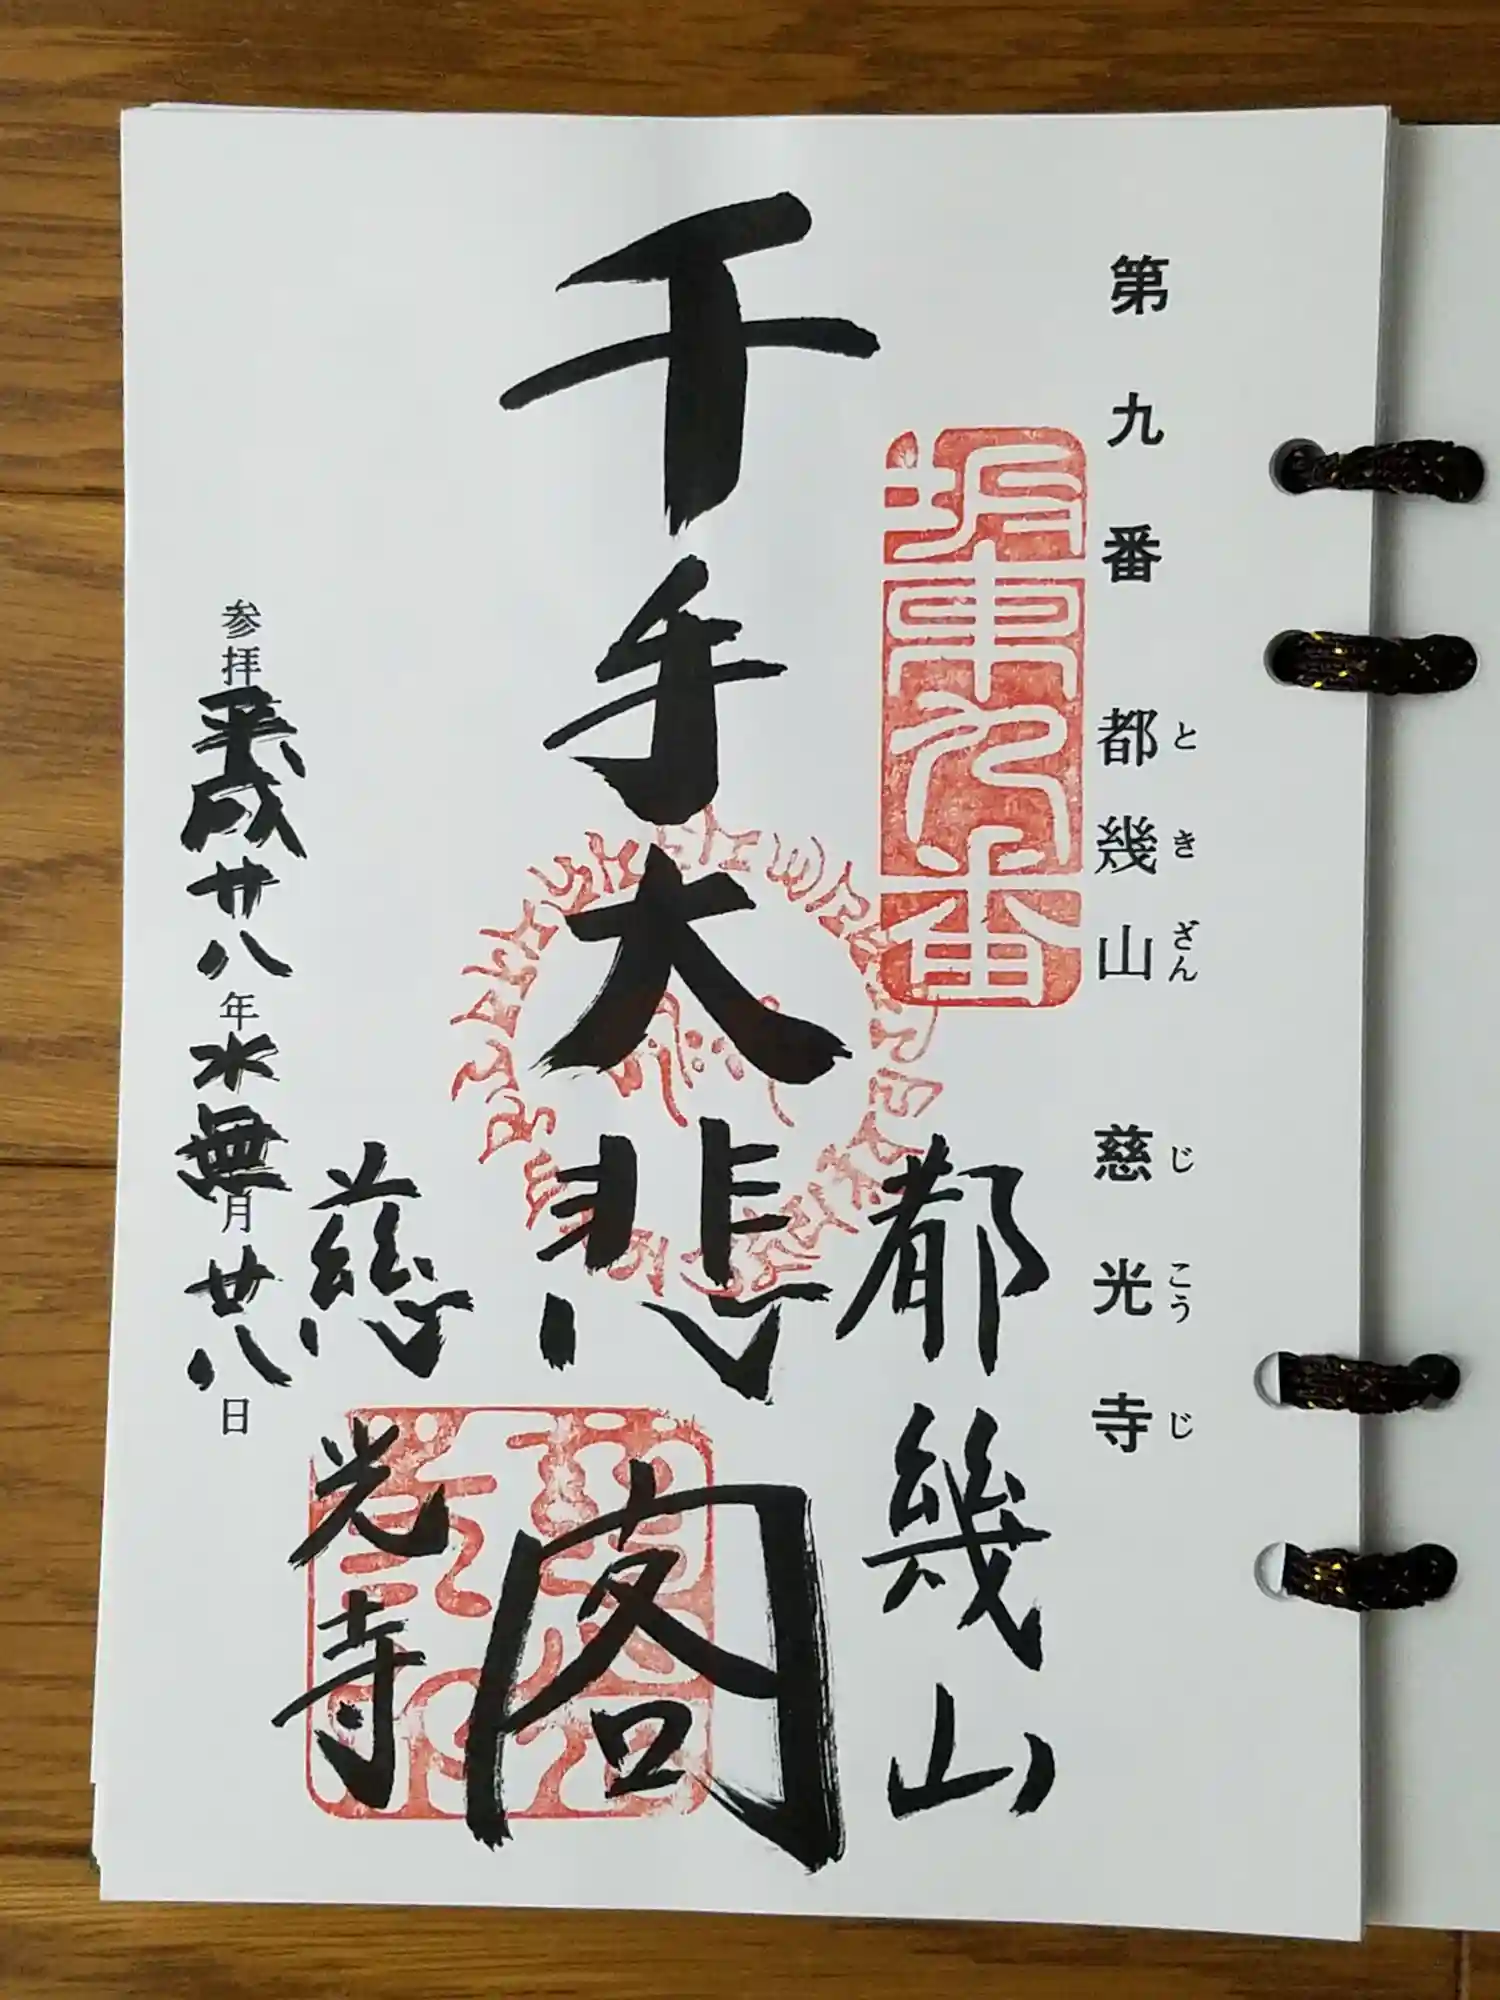 第九番 都幾山 慈光寺
ときざん じこうじ
坂東九番
都幾山
千手大悲閣
慈光寺
参拝平成廿八年水無月廿八日